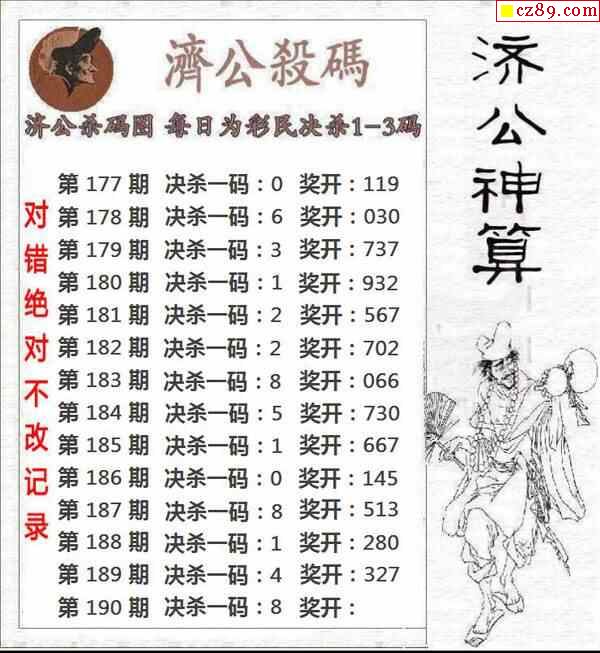 cz89.com
濟公殺碼
济公杀码图 每日为彩民决杀1-3码
第 177 期 决杀一码：0 奖开：119
第 178 期 决杀一码：6 奖开：030
第 179 期 决杀一码：3 奖开：737
第 180 期 决杀一码：1 奖开：932
第 181 期 决杀一码：2 奖开：567
第 182 期 决杀一码：2 奖开：702
第 183 期 决杀一码：8 奖开：066
第 184 期 决杀一码：5 奖开：730
第 185 期 决杀一码：1 奖开：667
第 186 期 决杀一码：0 奖开：145
第 187 期 决杀一码：8 奖开：513
第 188 期 决杀一码：1 奖开：280
第 189 期 决杀一码：4 奖开：327
第 190 期 决杀一码：8 奖开：
对错绝对不改记录
济公神算